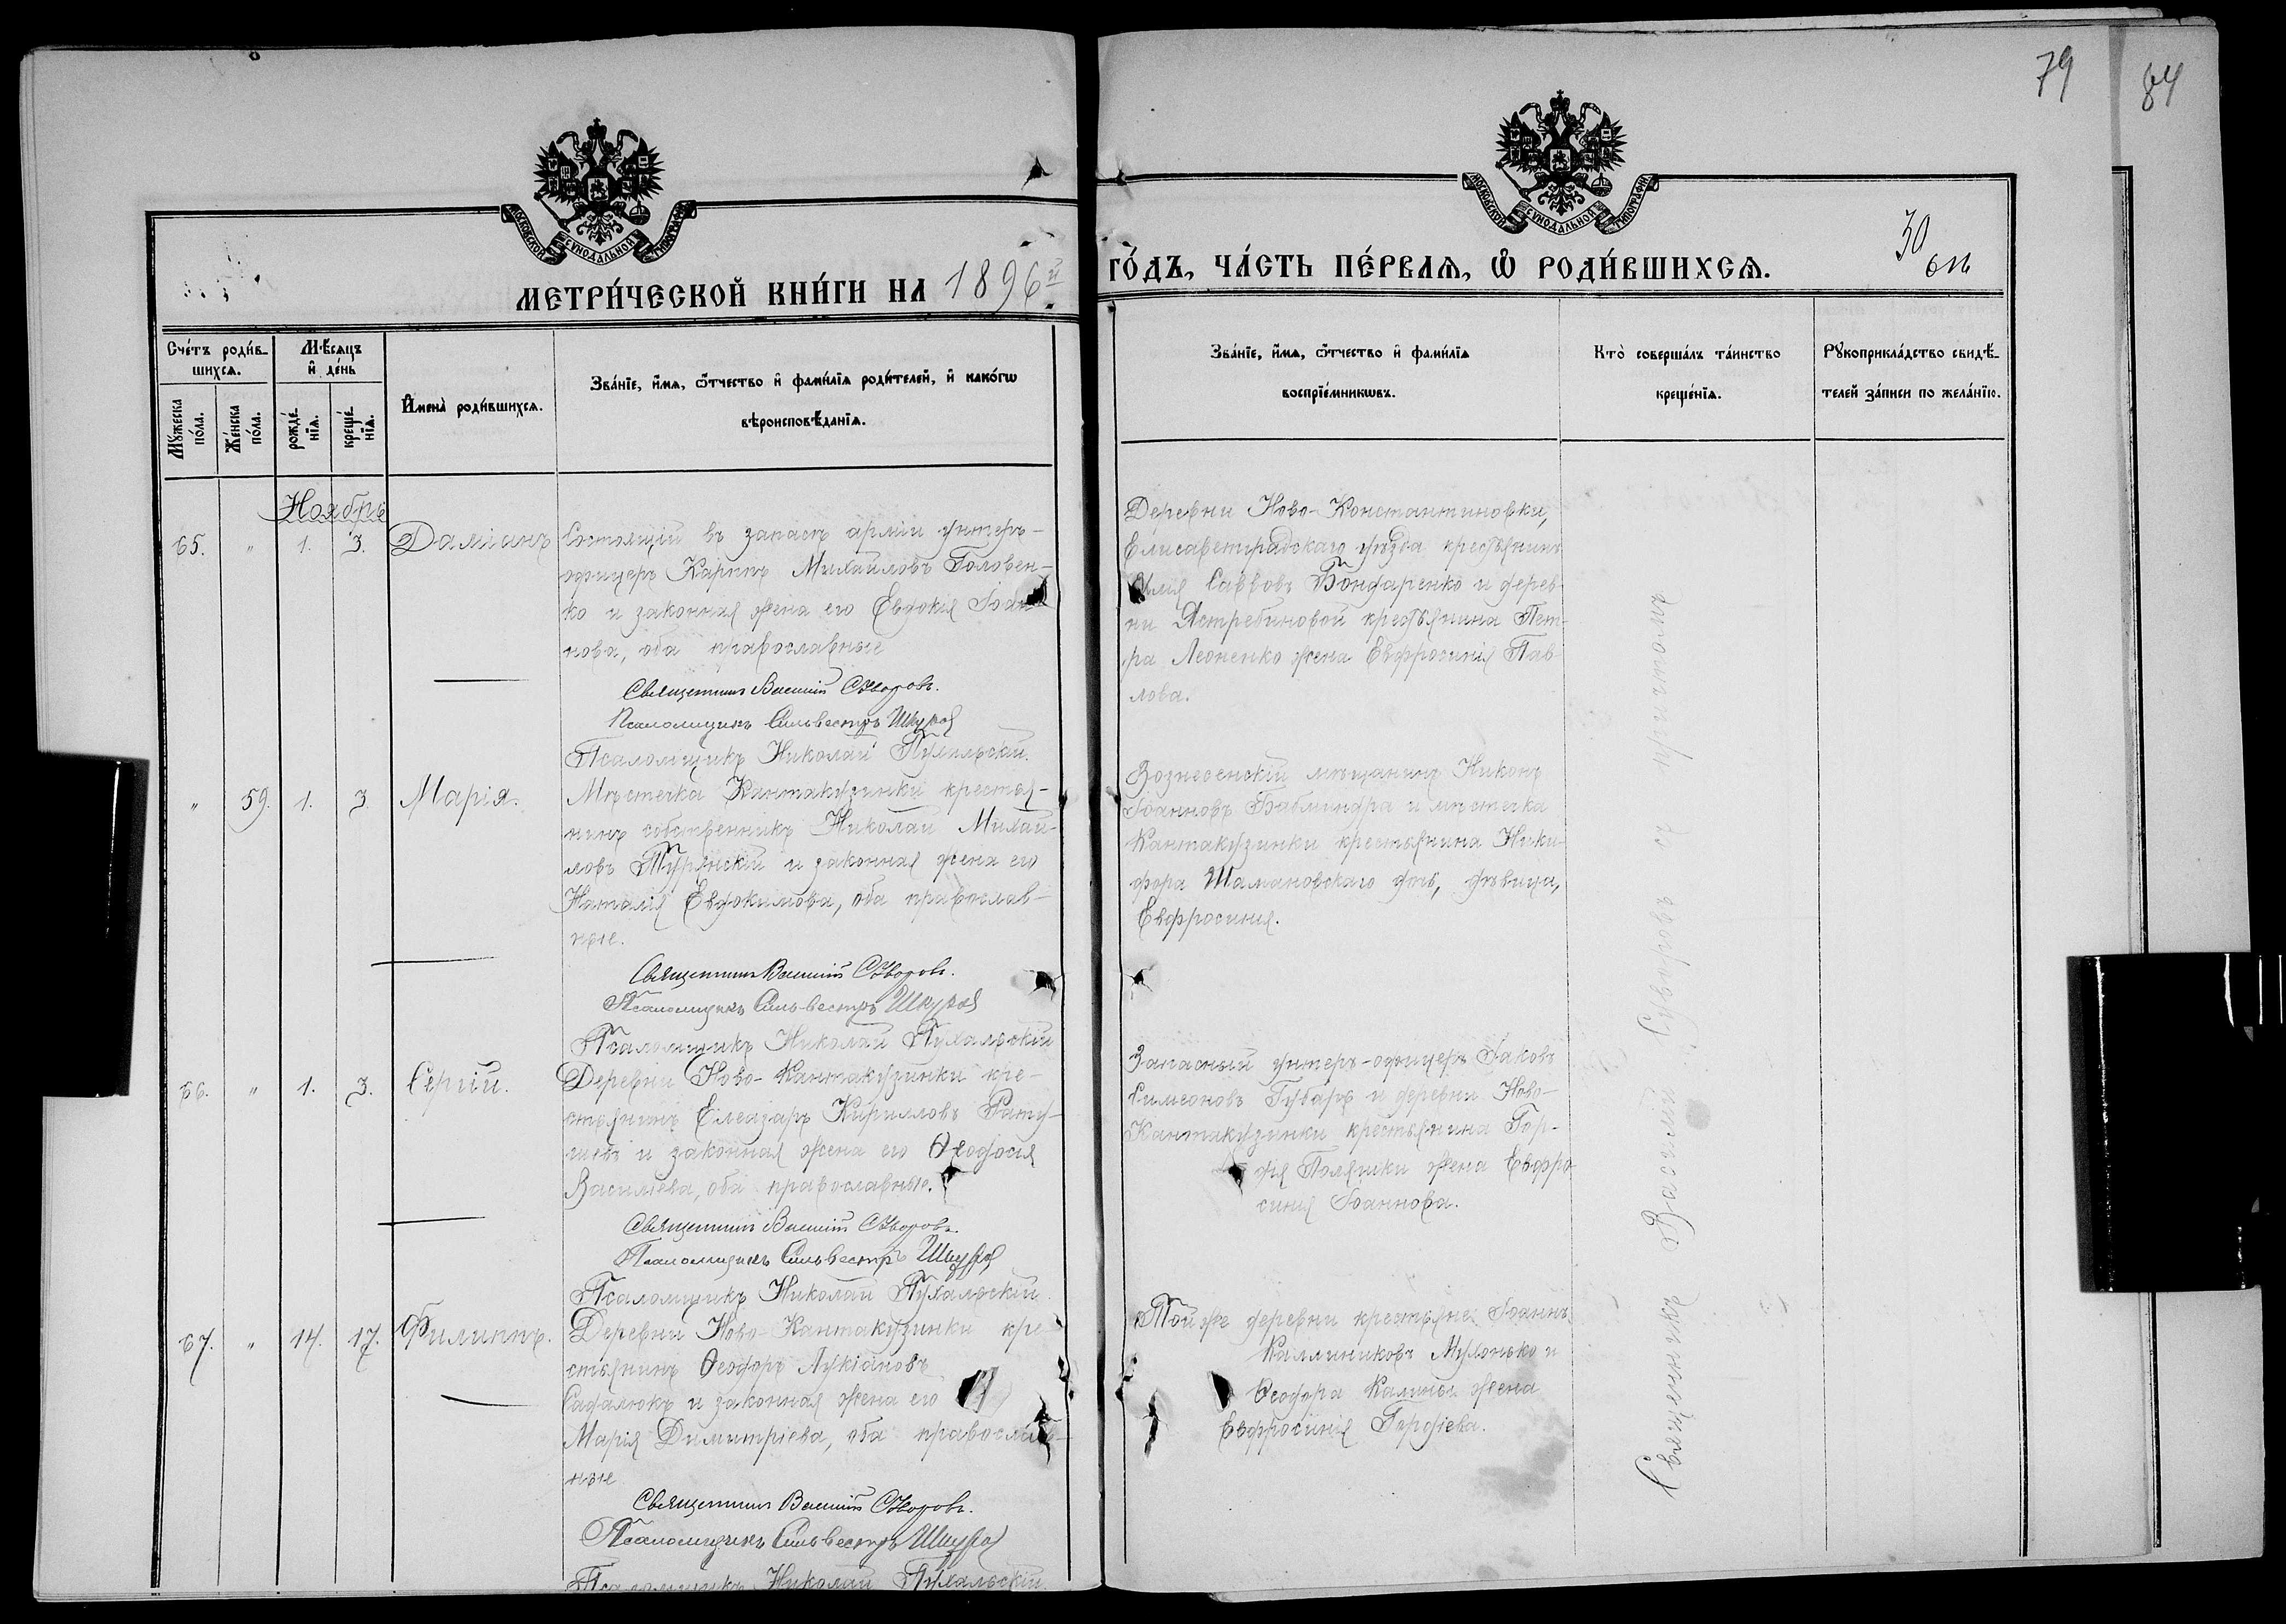 79
84
МОСКОВСКОЙ СУНОДАЛЬНОЙ ТИПОГРАФІИ
МЕТРИ́ЧЕСКОЙ КНИ́ГИ НА 1896й
Сче́тъ роди́в-
шихсѧ.
Мѣ́сѧцъ
и҆ де́нь
Мꙋ́жеска
по́ла.
Же́нска
по́ла.
рожде́-
нїѧ.
креще́-
нїѧ.
И҆мена̀ роди́вшихсѧ.
Зва́нїе, и҆́мѧ, ѻ҆́тчество и҆ фами́лїѧ роди́телей, и҆ како́гѡ
вѣроисповѣ́данїѧ.
Ноябрь
65. " 1. 3. Даміанъ
Состоящій въ запасѣ арміи унтеръ-
офицеръ Карпъ Михайловъ Головен-
ко и законная жена его Евдокія Іоан-
нова, оба православные
Священникъ Василій Суворовъ.
Псаломщикъ Сильвестръ
Псаломщикъ Николай Пухальскій.
" 59. 1. 3. Марія.
Мѣстечка Кантакузинки крестья-
нинъ собственникъ Николай Михай-
ловъ Турянскій и законная жена его
Наталія Евдокимова, оба православ-
ные.
Священникъ Василій Суворовъ.
Псаломщикъ Сильвестръ
Псаломщикъ Николай Пухальскій
66. " 1. 3. Сергій.
Деревни Ново-Кантакузинки кре-
стьянинъ Елеазаръ Кирилловъ
и законная жена его Ѳеодосія
Василіева, оба православные.
Священникъ Василій Суворовъ.
Псаломщикъ Сильвестръ
Псаломщикъ Николай Пухальскій.
67. " 14. 17. Филиппъ.
Деревни Ново-Кантакузинки кре
стьянинъ Ѳеодоръ Лукіановъ
Садалюкъ и законная жена его
Марія Димитріева, оба православ-
ные
Священникъ Василій Суворовъ.
Псаломщикъ Сильвестръ
Псаломщикъ Николай Пухальскій
МОСКОВСКОЙ СУНОДАЛЬНОЙ ТИПОГРАФІИ
ГО́ДЪ, ЧА́СТЬ ПЕ́РВАѦ, Ѡ҆ РОДИ́ВШИХСѦ.
30
Зва́нїе, и҆́мѧ, ѻ҆́тчество и҆ фами́лїѧ
воспрїе́мникѡвъ.
Кто̀ соверша́лъ та́инство
креще́нїѧ.
Рꙋкоприкла́дство свидѣ́-
телей за́писи по жела́нїю.
Деревни Ново-Константиновки,
Елисаветградскаго уѣзда крестьянинъ
Илія Саввовъ Бондаренко и дерев-
ни Ястребиновой крестьянина Пет-
ра Леоненко жена Евфросинія Пав-
лова.
Вознесенскій мѣщанинъ Никонъ
Іоанновъ и мѣстечка
Кантакузинки крестьянина Ники-
фора Шамановскаго дочь, дѣвица,
Евфросинія.
Запасный унтеръ-офицеръ Іаковъ
Симеоновъ Губарь и деревни Ново-
Кантакузинки крестьянина Гор-
дія Полящки жена Евфро
синія Іоаннова.
Той же деревни крестьяне: Іоаннъ
Каллиниковъ Мухонько и
Ѳеодора Калины жена
Евфросинія Гордіева.
Священникъ Василій Суворовъ съ причтомъ